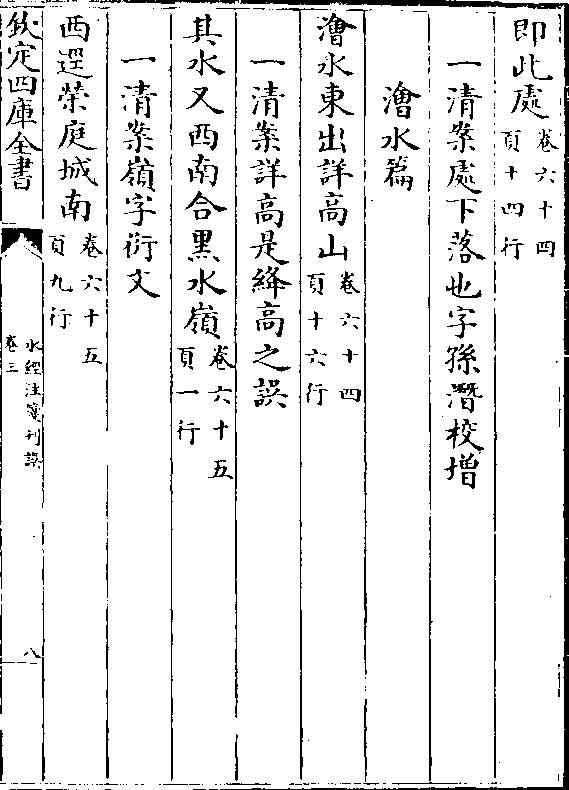 即此處卷六十四頁十四行
一清案處下落也字孫潛校增
澮水篇
澮水東出詳高山卷六十四頁十六行
一清案詳高是絳高之誤
其水又西南合黑水嶺卷六十五頁一行
一清案嶺字衍文
西逕榮庭城南卷六十五頁九行
欽定四庫全書
水經注箋刊誤
卷三
八